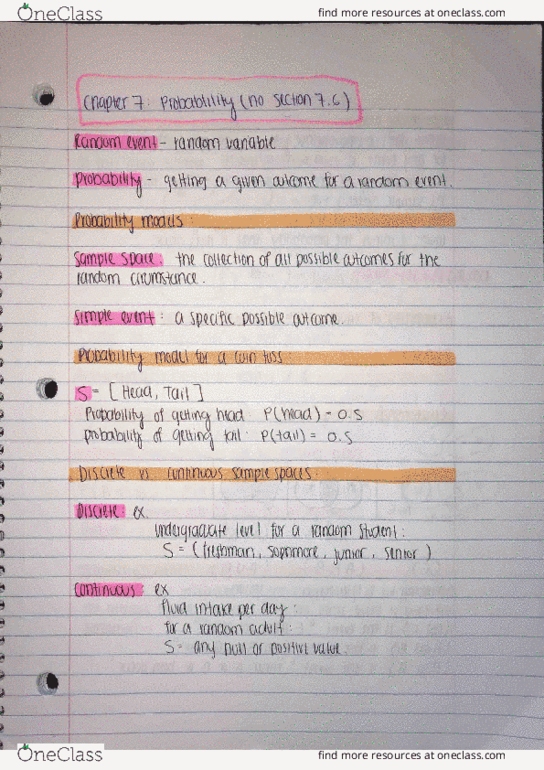 OneClass find more resources at oneclass.com
Chapter 7: Probablility (no section 7.6)
Random event - random variable
Probability - getting a given outcome for a random event.
Probability models:
Sample space: the collection of all possible outcomes for the
random circumstance.
Simple event: a specific possible outcome.
Probability model for a coin toss
S = [Head, Tail]
Probability of getting head P(head) = 0.5
probability of getting tail: P(tail) = 0.5
Discrete vs. continuous sample spaces:
Discrete: ex
undergraduate level for a random student:
S = (freshman, sophmore, junior, senior)
Continuous ex
fluid intake per day:
for a random adult:
S = any null or positive value.
OneClass find more resources at oneclass.com